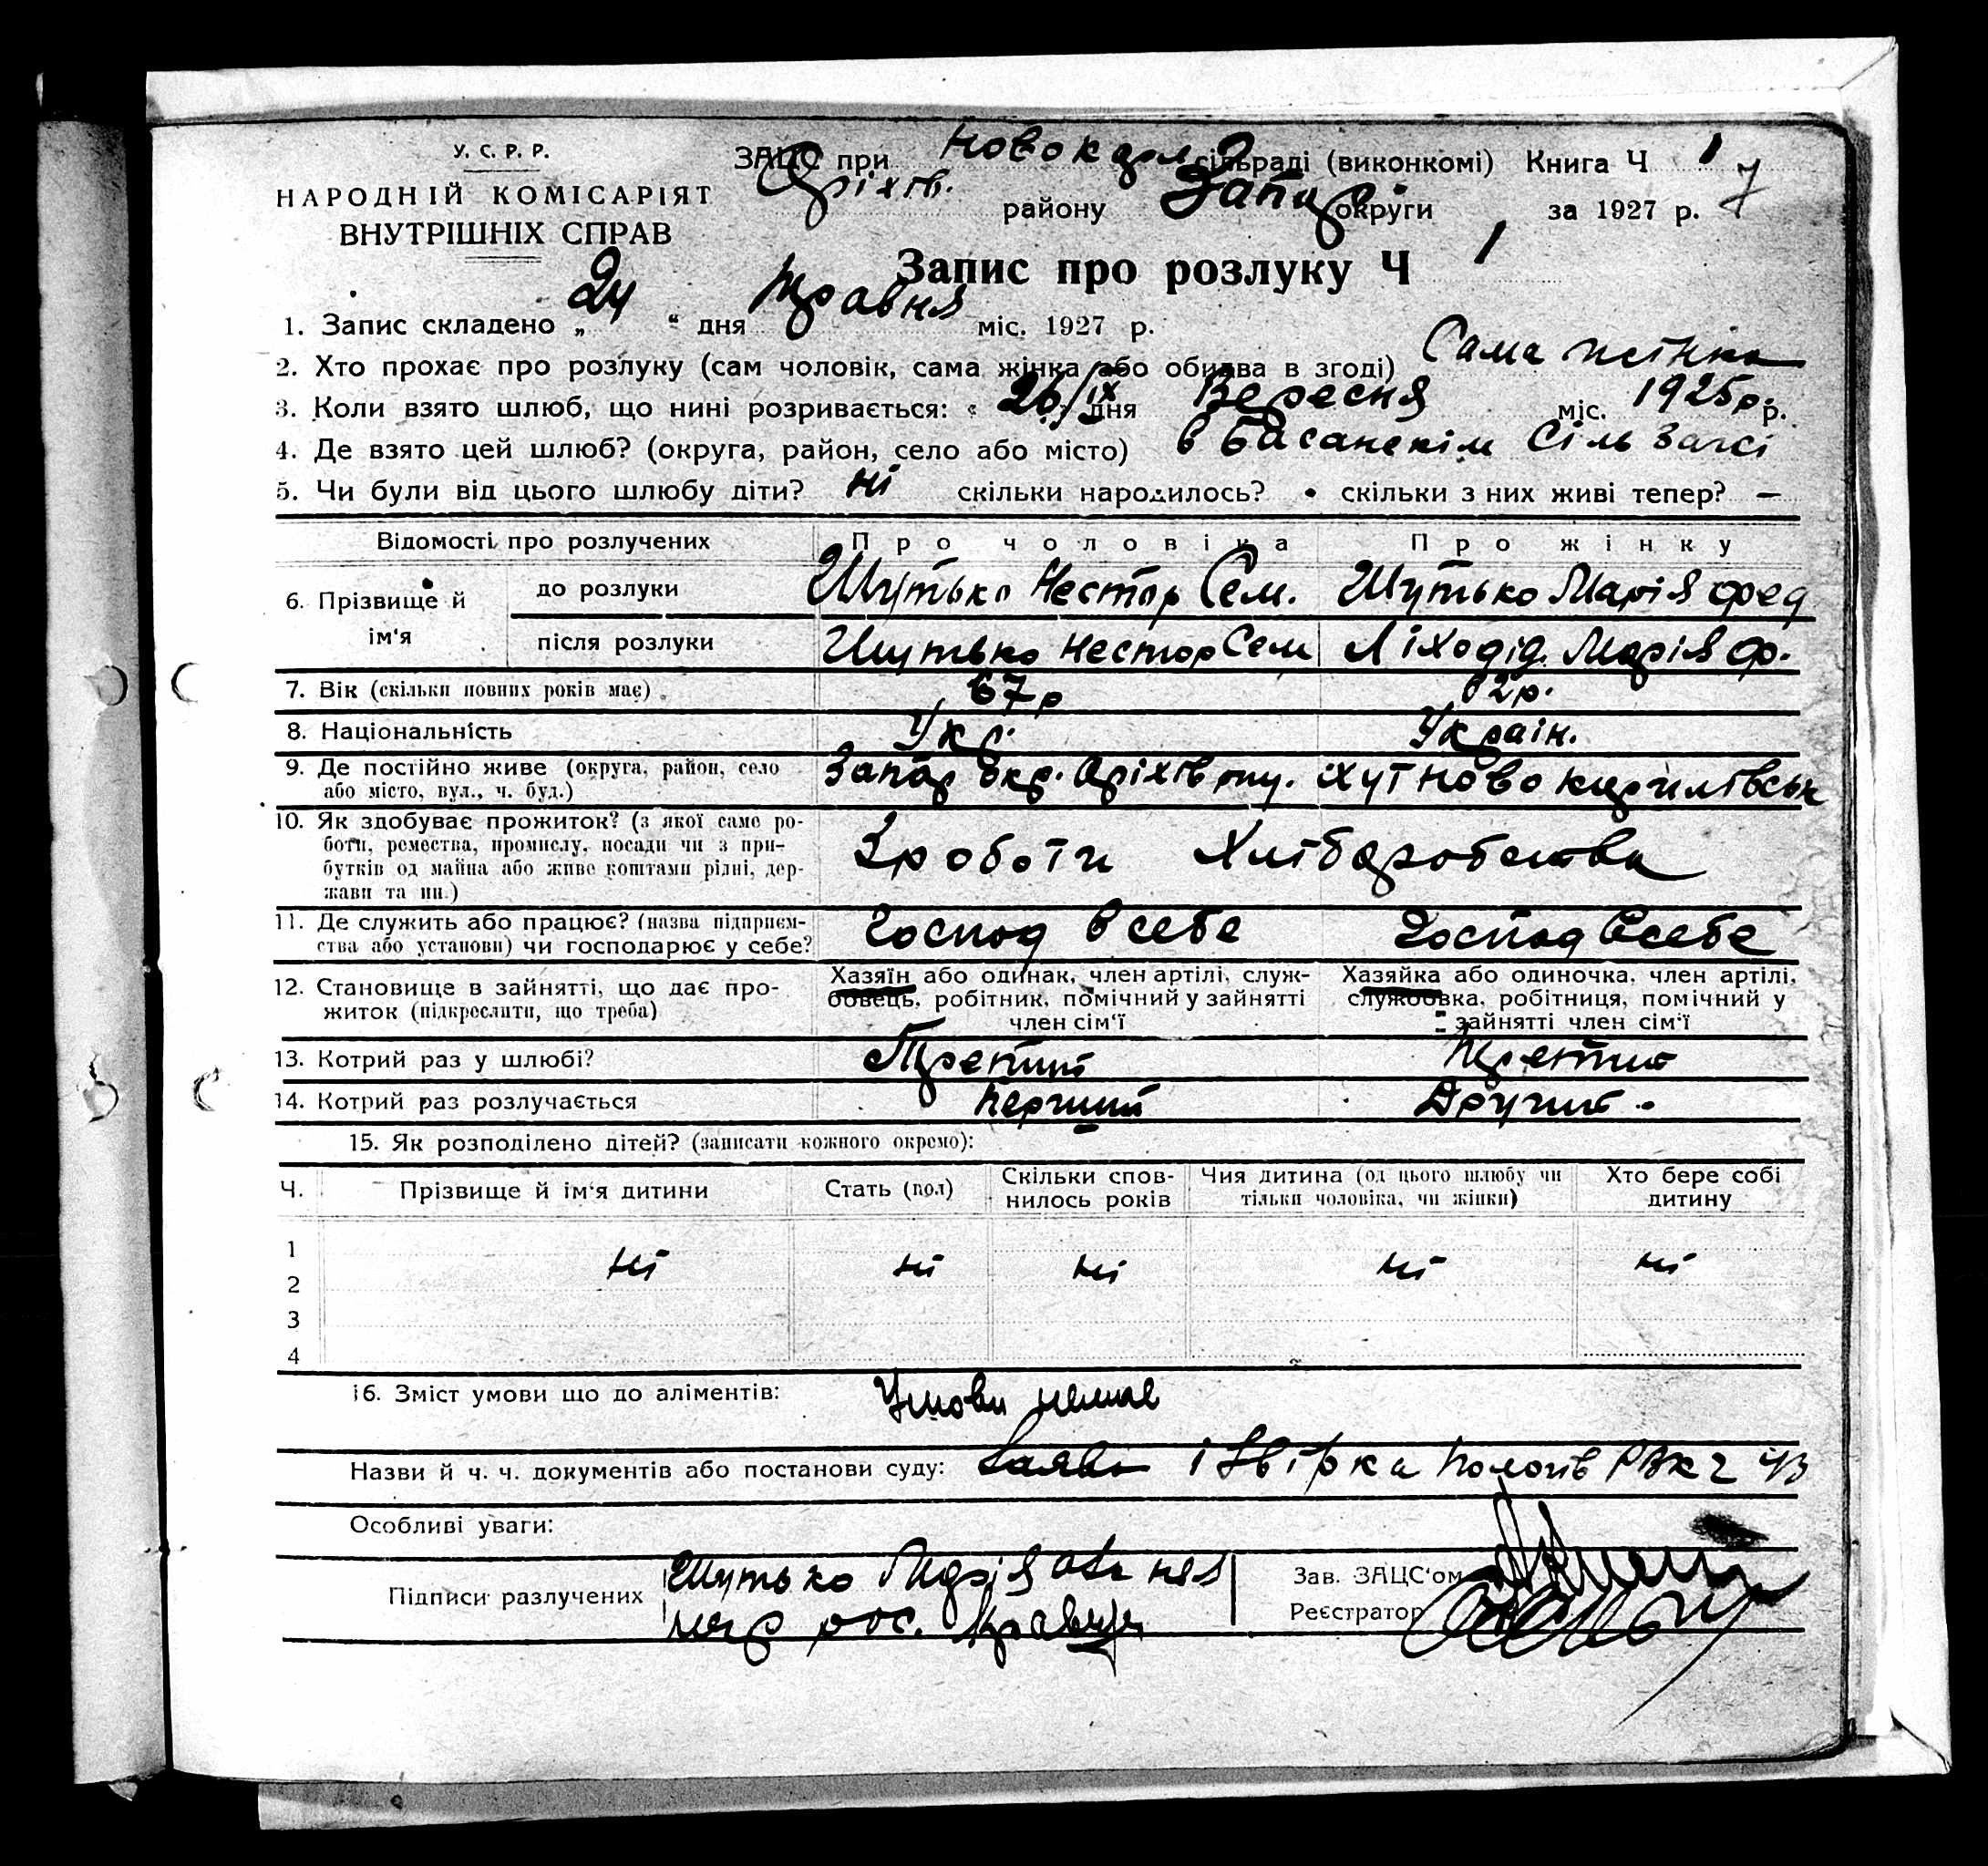 У. С. Р. Р.
НАРОДНІЙ КОМІСАРІЯТ
ВНУТРІШНІХ СПРАВ
ЗАЦС при сільраді (виконкомі) Книга Ч 1
7
Оріхів. району Запор округи за 1927 р.
Запис про розлуку Ч 1
1. Запис складено „ 24 “ дня Травня міс. 1927 р.
2. Хто прохає про розлуку (сам чоловік, сама жінка або обидва в згоді) Сама жінка
3. Коли взято шлюб, що нині розривається: « 26/IX » дня Вересня міс. 1925р. р.
4. Де взято цей шлюб? (округа, район, село або місто) в Басанскім Сіль Загсі
5. Чи були від цього шлюбу діти? ні скільки народилось? • скільки з них живі тепер? —
Відомості про розлучених Про чоловіка Про жінку
6. Прізвище й ім‘я
до розлуки Шутько Нестор Сем. Шутько Марія Фед
після розлуки Шутько Нестор Сем Ліходід. Марія Ф.
7. Вік (скільки повних років має) 67р 62р.
8. Національність Укр. Україн.
9. Де постійно живе (округа, район, село Запор окр. Оріхів хут Ново Кирилівськ
або місто, вул., ч. буд.)
10. Як здобуває прожиток? (з якої саме ро-
боти, ремества, промислу, посади чи з при-
бутків од майна або живе коштами рідні, дер-
жави та ин.)
З роботи Хліборобства
11. Де служить або працює? (назва підприєм-
ства або установи) чи господарює у себе?
Господ в себе Господ в себе
12. Становище в зайнятті, що дає про-
житок (підкреслити, що треба)
Хазяїн або одинак, член артілі, служ-
бовець, робітник, помічний у зайнятті
член сім‘ї
Хазяйка або одиночка, член артілі,
службовка, робітниця, помічний у
зайнятті член сім‘ї
13. Котрий раз у шлюбі? Третий Третий
14. Котрий раз розлучається Перший Другий.
15. Як розподілено дітей? (записати кожного окремо):
Ч. Прізвище й ім‘я дитини Стать (пол) Скільки спов-
нилось років Чия дитина (од цього шлюбу чи
тільки чоловіка, чи жінки) Хто бере собі
дитину
1 ні ні ні ні ні
2
3
4
16. Зміст умови що до аліментів: Умови немае
Назви й ч. ч. документів або постанови суду: Заява і Пологів РВК
Особливі уваги:
Підписи разлучених Шутько Марія
нягр рос.
Зав. ЗАЦС‘ом
Реєстратор